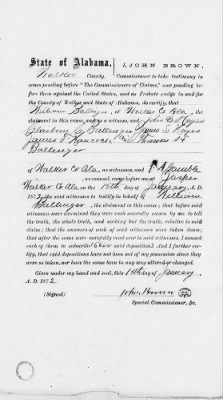 State of Alabama,
Walker County.
I, JOHN BROWN,
Commissioner to take testimony in
cases pending before "The Commissioners of Claims," now pending be-
fore them against the United States, and as Probate Judge in and for
the County of Walker and State of Alabama, do certify, that
William Ballinger, of Walker Co Ala,
the claimant in this cause, and as a witness, and John B Hayes
James Hayes
James F
Ballinger
of Walker Co Ala, as witnesses, and F A Gamble
as counsel, came before me at Jasper
Walker Co Ala on the 15th day of January, A. D.
1872, the said witnesses to testify in behalf of William
Ballinger, the claimant in this cause; that before said
witnesses were examined they were each severally sworn by me to tell
the truth, the whole truth, and nothing but the truth, relative to said
claim; that the answers of each of said witnesses were taken down;
that after the same were carefully read over to said witnesses, I caused
each of them to subscribe their said depositions. And I further certify,
that said depositions have not been out of my possession since they
were so taken, nor have the same been in any way altered or changed.
Given under my hand and seal, this day of January,
A. D. 1872
(Signed) John Brown
Special Commissioner, &c.